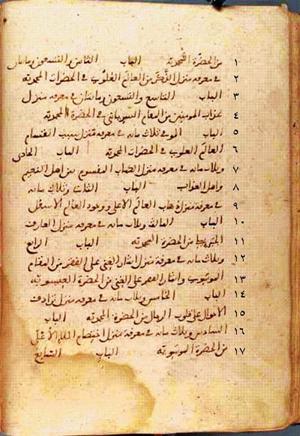 ١ من الحضرة المحمدية الباب الثامن والتسعون ومائتان
٢ في معرفة منزل الذكر من العالم العلوي في الحضرات المحمدية
٣ الباب التاسع والتسعون ومائتان في معرفة منزل
٤ عذاب المؤمنين من المقام السرياني في الحضرة المحمدية
٥ الباب الموفي ثلاث مائة في معرفة منزل سبب انقسام
٦ العالم العلوي في الحضرات المحمدية الباب الحادي
٧ وثلاث مائة في معرفة منزل الكتاب المقسوم بين أهل النعيم
٨ وأهل العذاب الباب الثاني وثلاث مائة
٩ في معرفة منزل ذهاب العالم الأعلى ووجود العالم الأسفل
١٠ الباب الثالث وثلاث مائة في معرفة منزل العارف
١١ من الحضرة المحمدية الباب الرابع
١٢ وثلاث مائة في معرفة منزل إيثار الغني على الفقر من المقام
١٣ الموسوي وإيثار الفقر على الغنى من الحضرة العيسوية
١٤ الباب الخامس وثلاث مائة في معرفة منزل ترادف
١٥ الأحوال على قلوب الرجال من الحضرة المحمدية الباب
١٦ السادس وثلاث مائة في معرفة منزل اختصام الملأ الأعلى
١٧ من الحضرة الموسوية الباب السابع